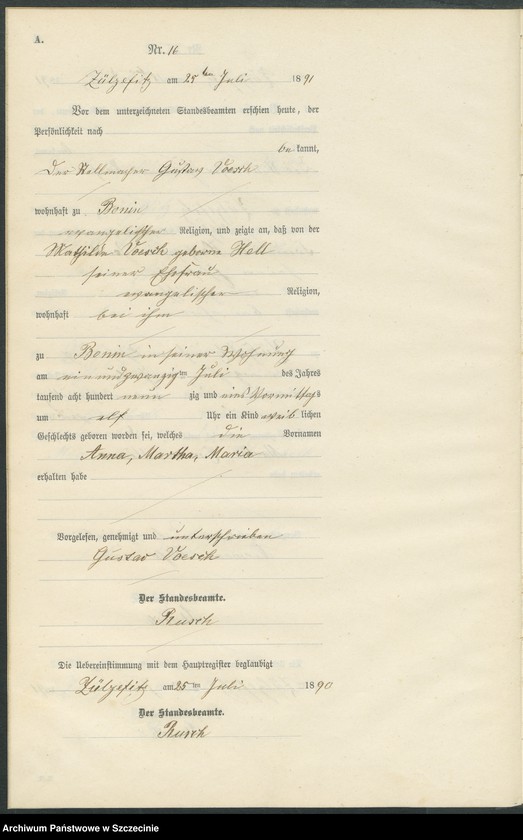 A.
Nr. 16
Zülzefitz am 25ten Juli 1891
Vor dem unterzeichneten Standesbeamten erschien heute, der
Persönlichkeit nach
bekannt,
der Stellmacher Gustav Voesch
wohnhaft zu Bonin
evangelischer Religion, und zeigte an, daß von der
Mathilde Voesch geborne Hell
seiner Ehefrau
evangelischer Religion,
wohnhaft bei ihm
zu Bonin in seiner Wohnung
am einundzwanzigten Juli des Jahres
tausend acht hundert neun zig und eins Vormittags
um elf Uhr ein Kind weiblichen
Geschlechts geboren worden sei, welches die Vornamen
Anna, Martha, Maria
erhalten habe
Vorgelesen, genehmigt und unterschrieben
Gustav Voesch
Der Standesbeamte.
Rusch
Die Uebereinstimmung mit dem Hauptregister beglaubigt
Zülzefitz am 25ten Juli 1890
Der Standesbeamte.
Rusch
Archiwum Państwowe w Szczecinie